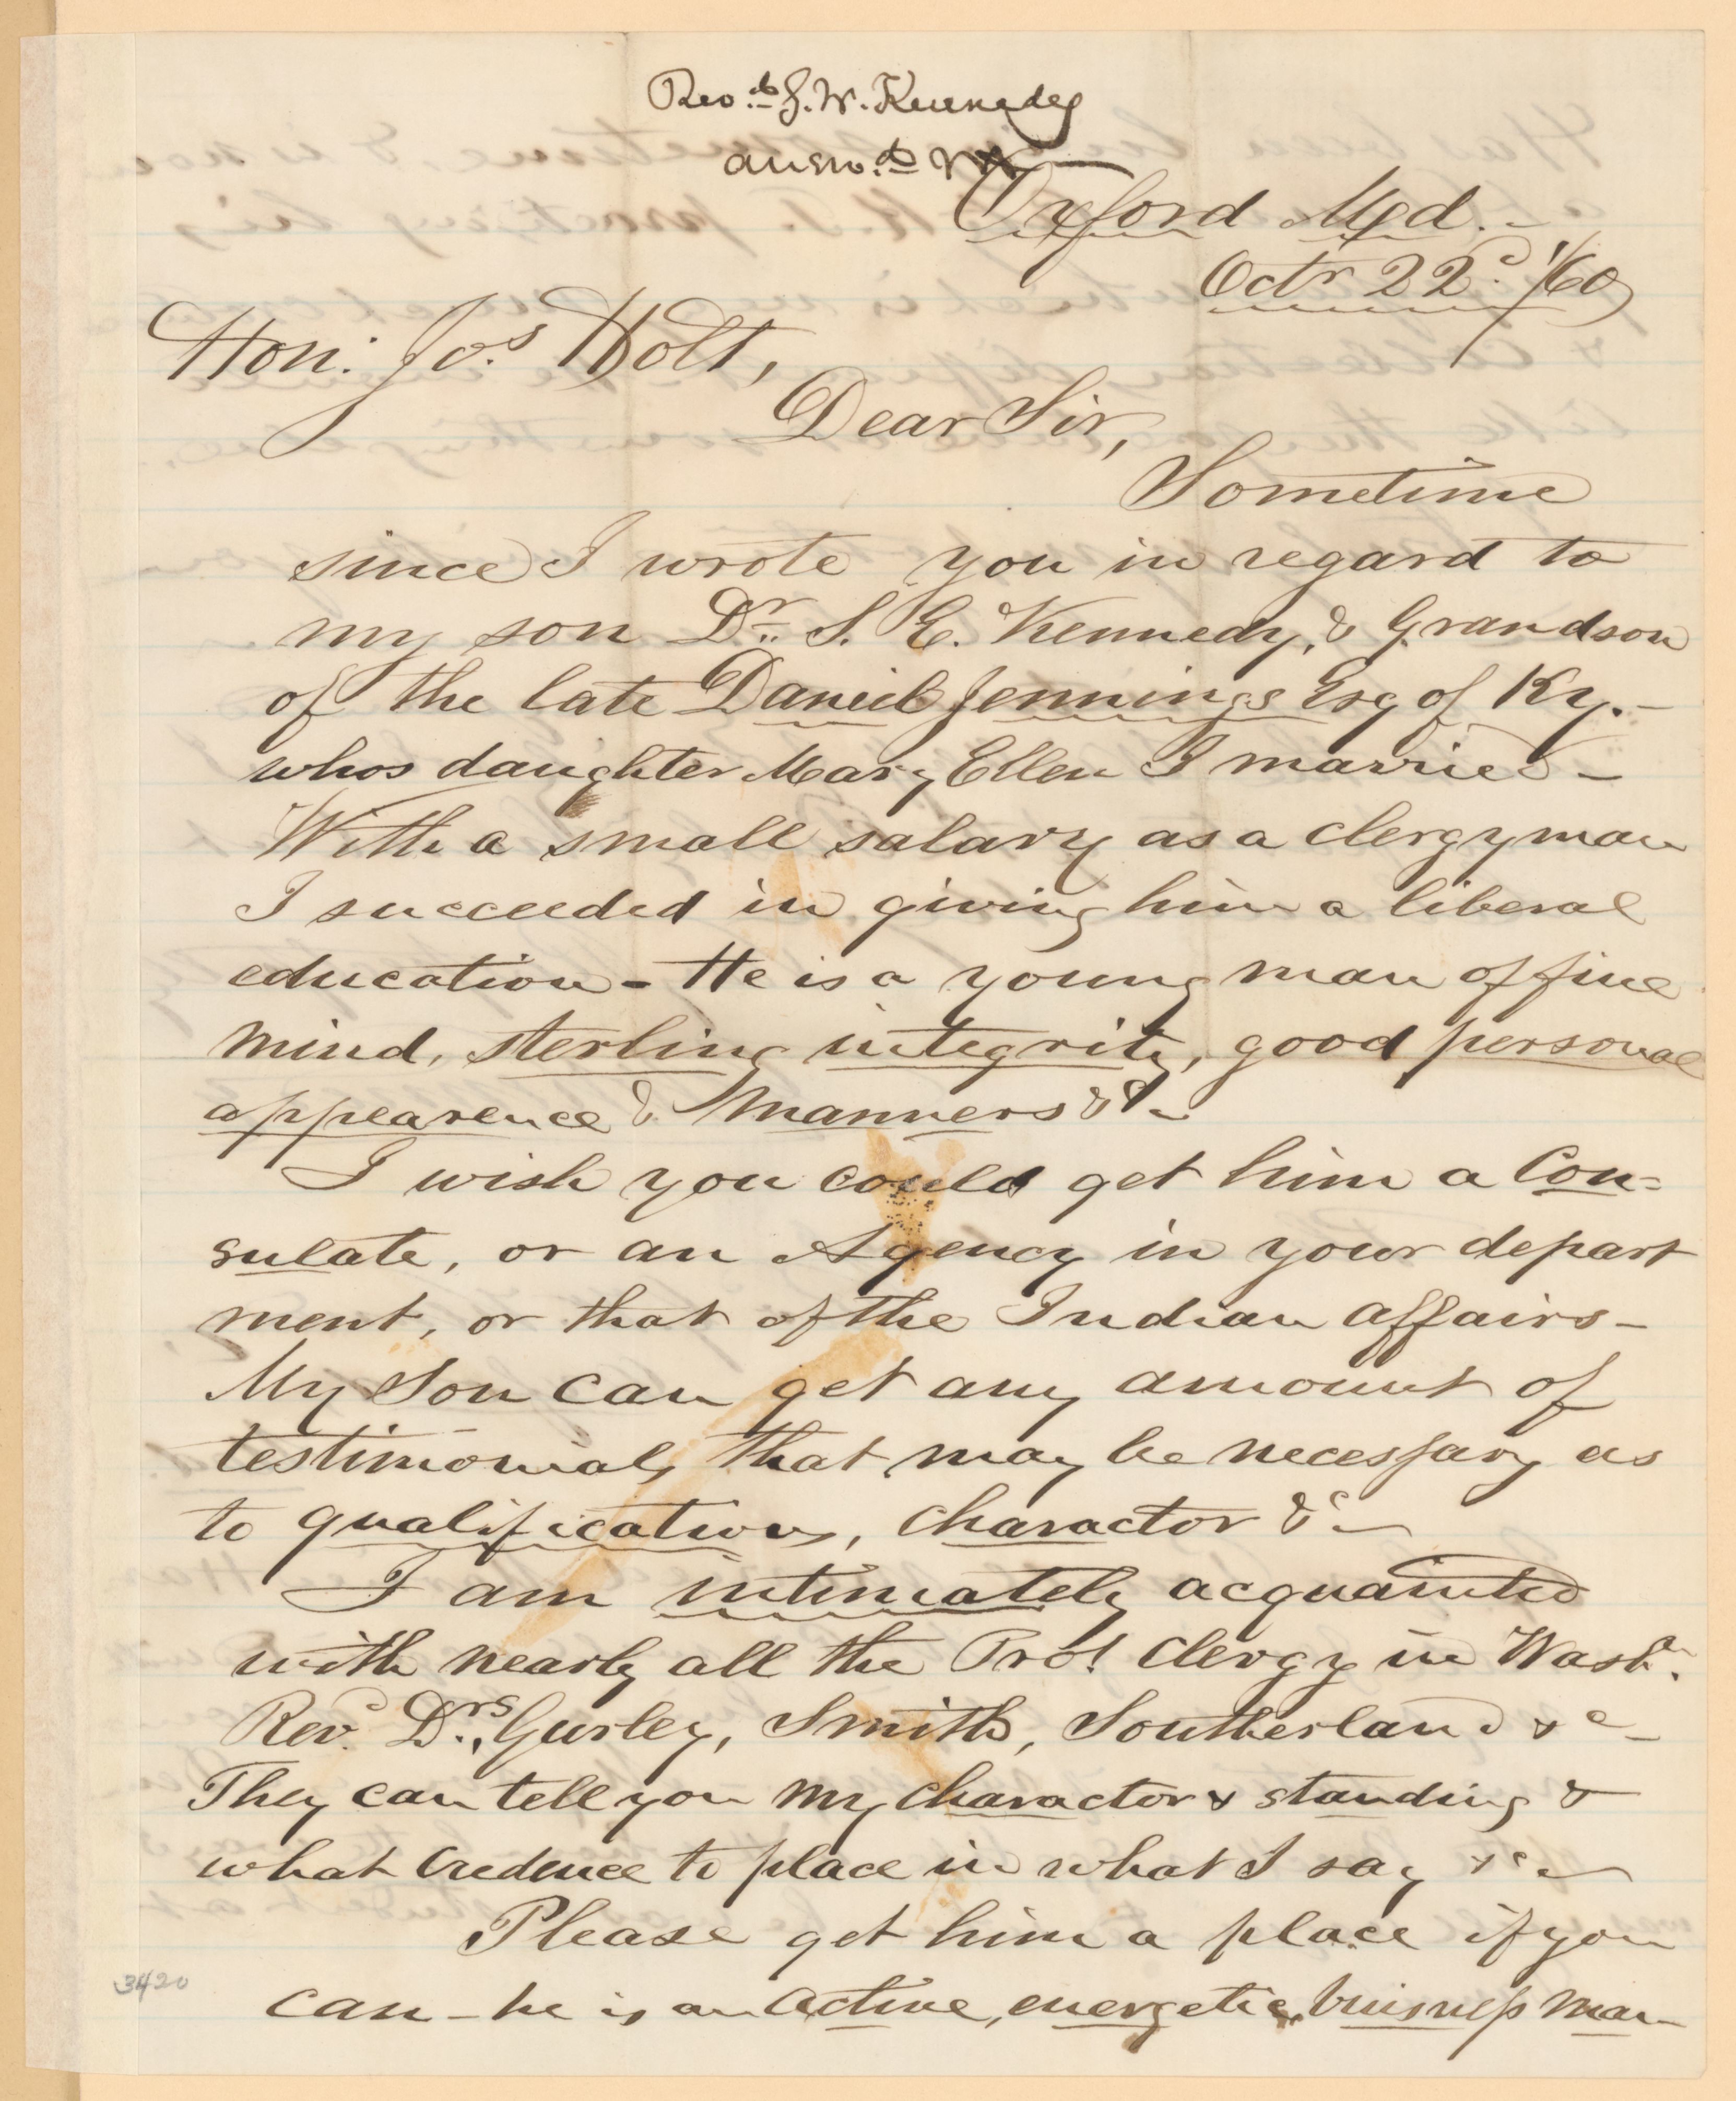 Rev.d J. W. Kennedy
answ.d
Oxford Md.-
Octr 22d. 1/60
Hon: Jos. Holt,
Dear Sir,
Sometime
since I wrote you in regard to
my son Dr. S. E. Kennedy, & Grandson
of the late Daniel Jennings Esq of Ky.-
whos daughter Mary Ellen I married -
With a small salary as a clergyman
I succeeded in giving him a liberal
education - He is a young man of fine
mind, sterling integrity, good personal
appearence & manners &c
I wish you could get him a Con=
sulate, or an Agency in your depart
ment, or that of the Indian affairs -
My Son can get any amount of
testimonials that may be necessary as
to qualifications, charactor &c
I am intimately acquainted
with nearly all the Prot clergy in Washn.
Revd. Drs. Gurley, Smith, Southerland &c -
They can tell you my charactor & standing &
what credence to place in what I say &c
Please get him a place if you
can - he is an active, energetic, buisness man -
3420